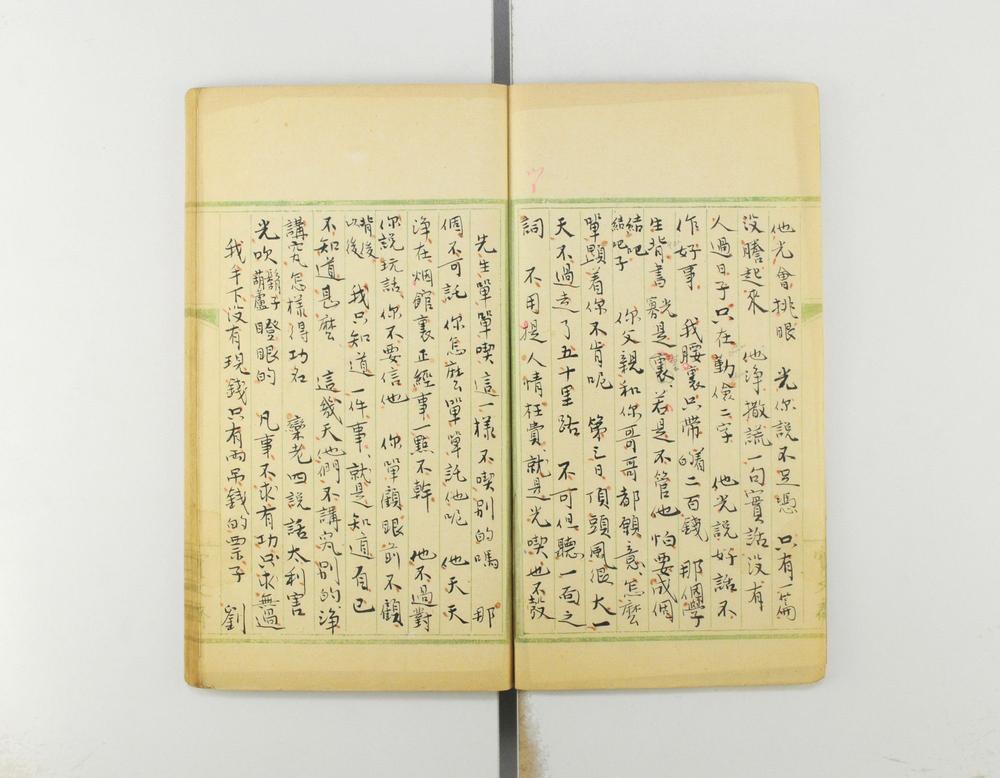 他光會挑眼　光你說不足憑　只有一篇
沒謄起來　他淨撒謊一句實話沒有
人過日子只在勤儉二字　他光說好話不
作好事　我腰裏只帶的着二百錢　那個學
生背書　光是裏、若是不管他怕要成個
結吧結吧子　你父親和你哥哥都願意怎麼
單顯着你不肯呢　第三日頂頭風很大一
天不過走了五十里路　不可但聽一面之
詞　不用提人情枉費就是光喫也不彀
先生單單喫這一樣不喫別的嗎　那
個不可託你怎麼單單託他呢　他天天
淨在烟館裏正經事一點不幹　他不過對
你說玩話你不要信他　你單顧眼前不顧
背後以後　我只知道一件事、就是知道自己
不知道甚麼　這幾天他們不講究別的淨
講究怎樣得功名　欒老四說話太利害
光吹鬍子葫蘆瞪眼的　凡事不求有功只求無過
我手下沒有現錢只有兩吊錢的票子　劉